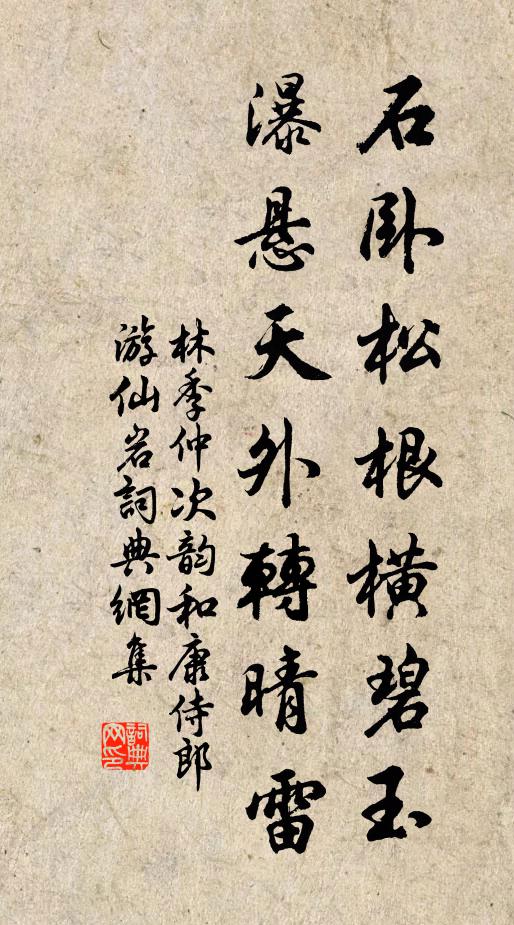 石卧松根橫碧玉
瀑悬天外轉晴雷
林季仲次韵和康侍郎
游仙岩詞典網集
詞典
网印